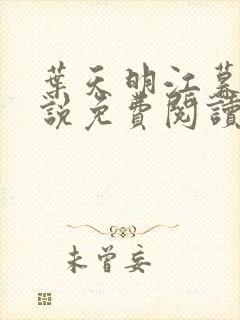 葉天明江幕
說免費閱讀
未曾妄